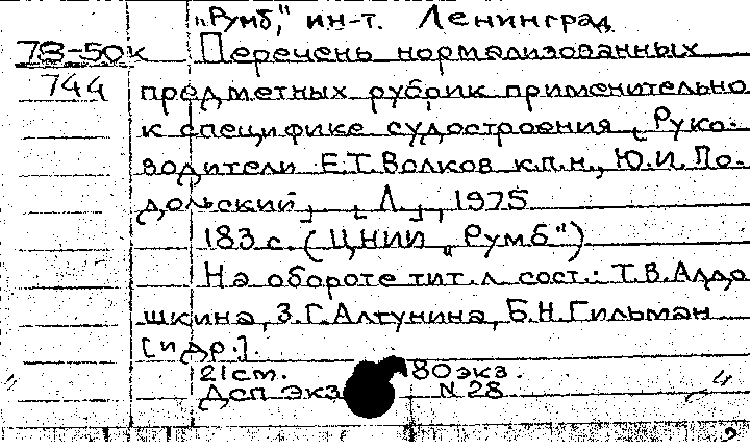 „Румб," ин-т. Ленинград
78-50к Перечень нормализованных
744 предметных рубрик применительно
к специфике судостроения [Руко-
водители Е.Т.Волков к.п.н., Ю.И. По-
дольский], [Л.], 1975
183 с. (ЦНИИ „Румб")
На обороте тит. л сост.: Т.В.Алдо
шкина, З.Г.Алтунина, Б.Н.Гильман
[и др.].
21 см. 80 экз.
ДСП Экз N 28